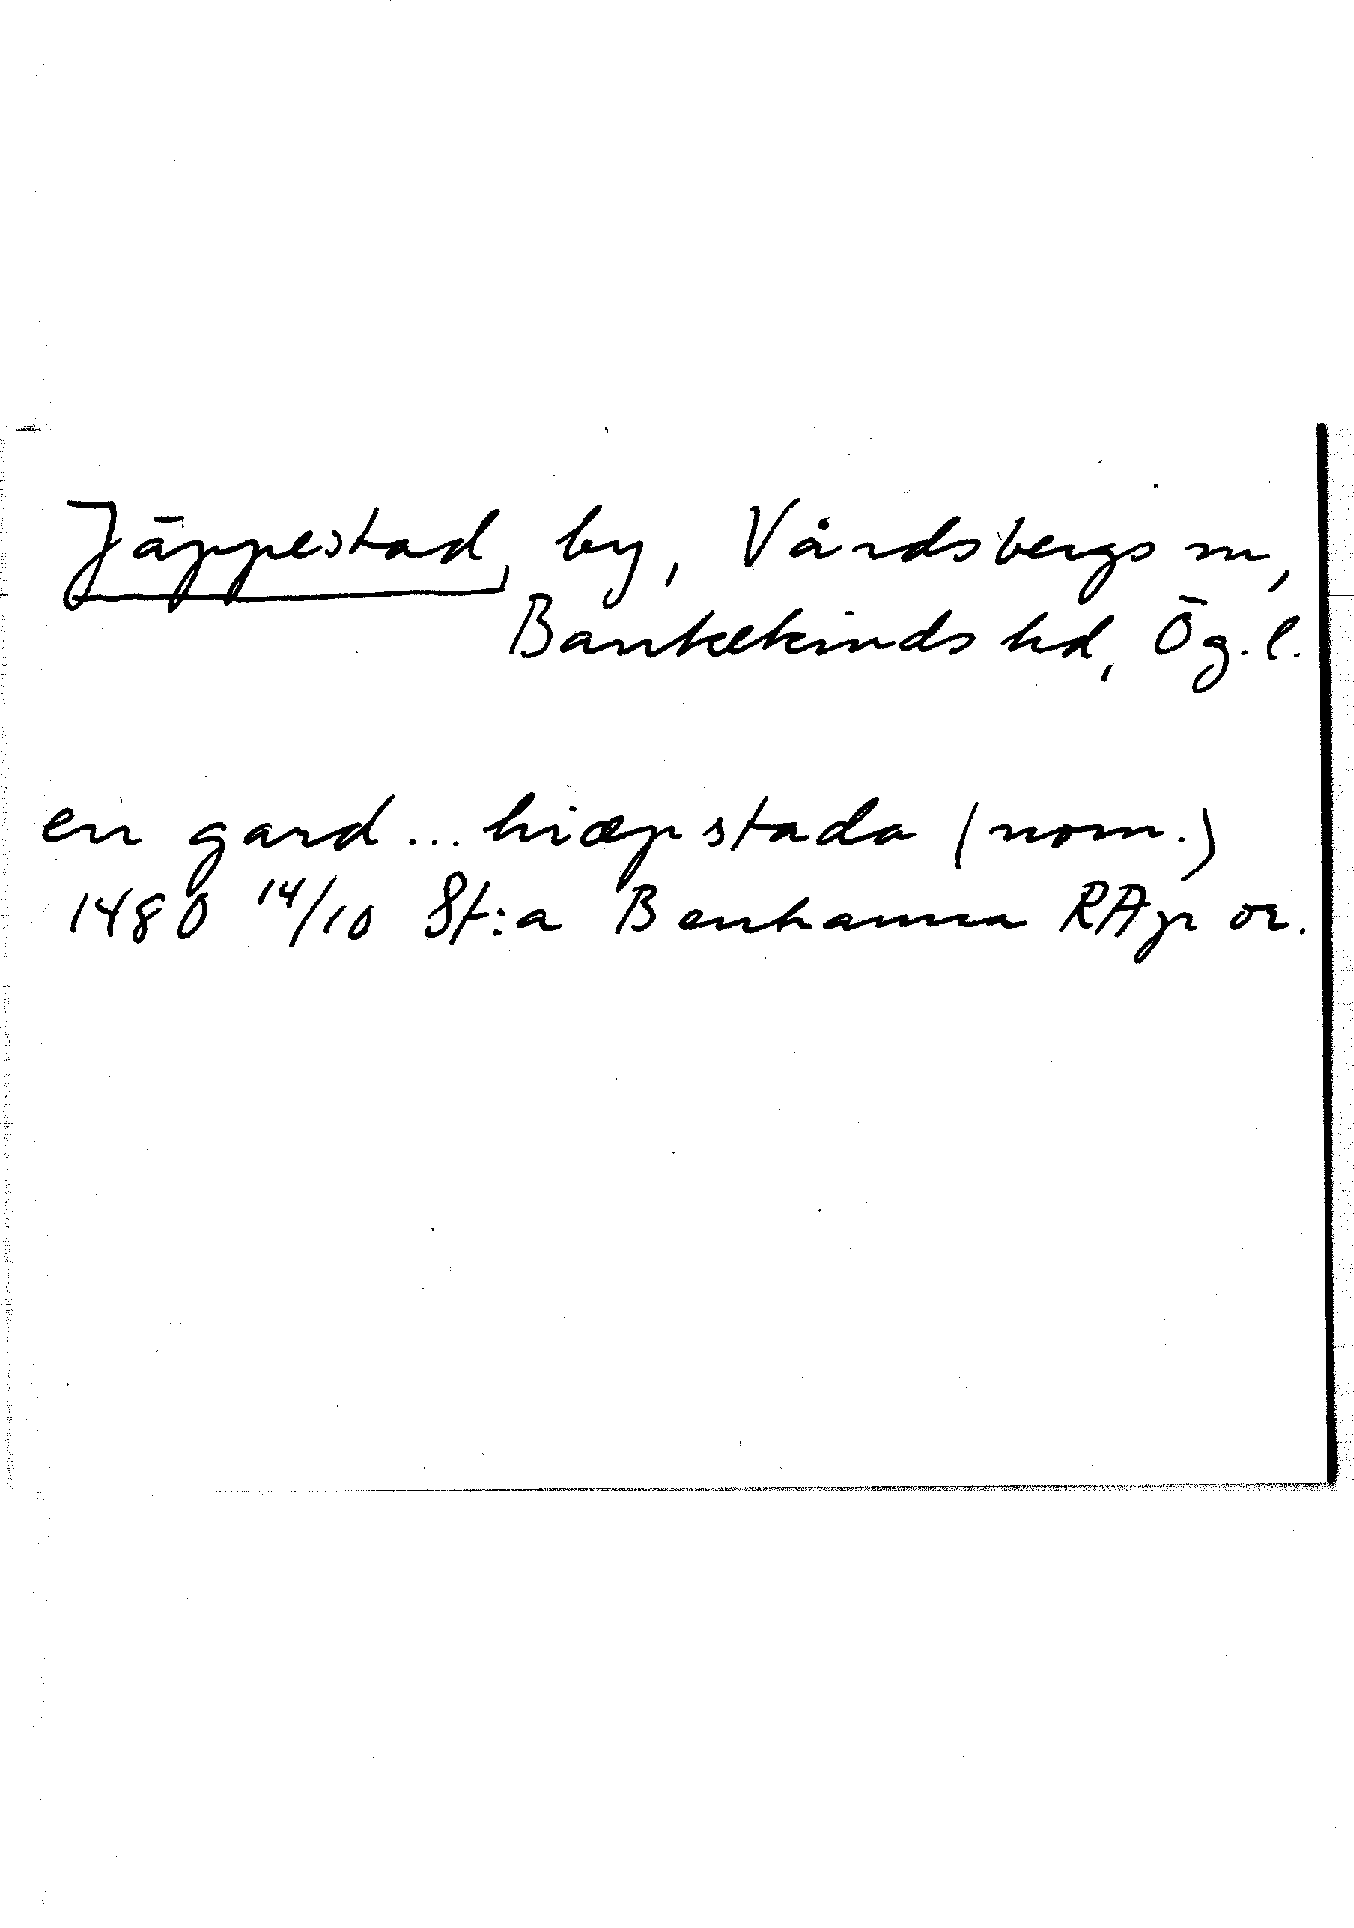 Jäppestad, by, Vårdsbergs sn,
Bankekinds hd, Ög. l.
en gard... hiæpstada (nom.)
1480 14/10 St:a Benhamra RAp or.